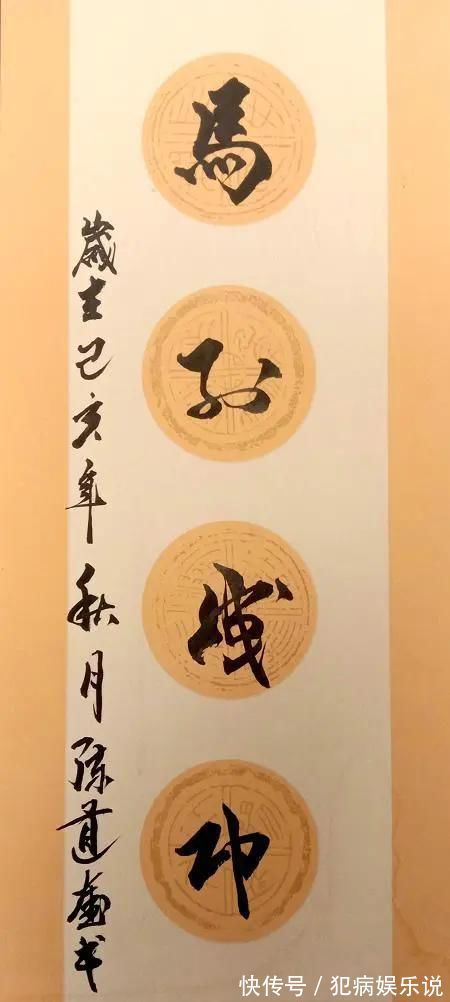 馬到成功
歲在己亥年秋月陈道书
快传号 / 犯病娱乐说